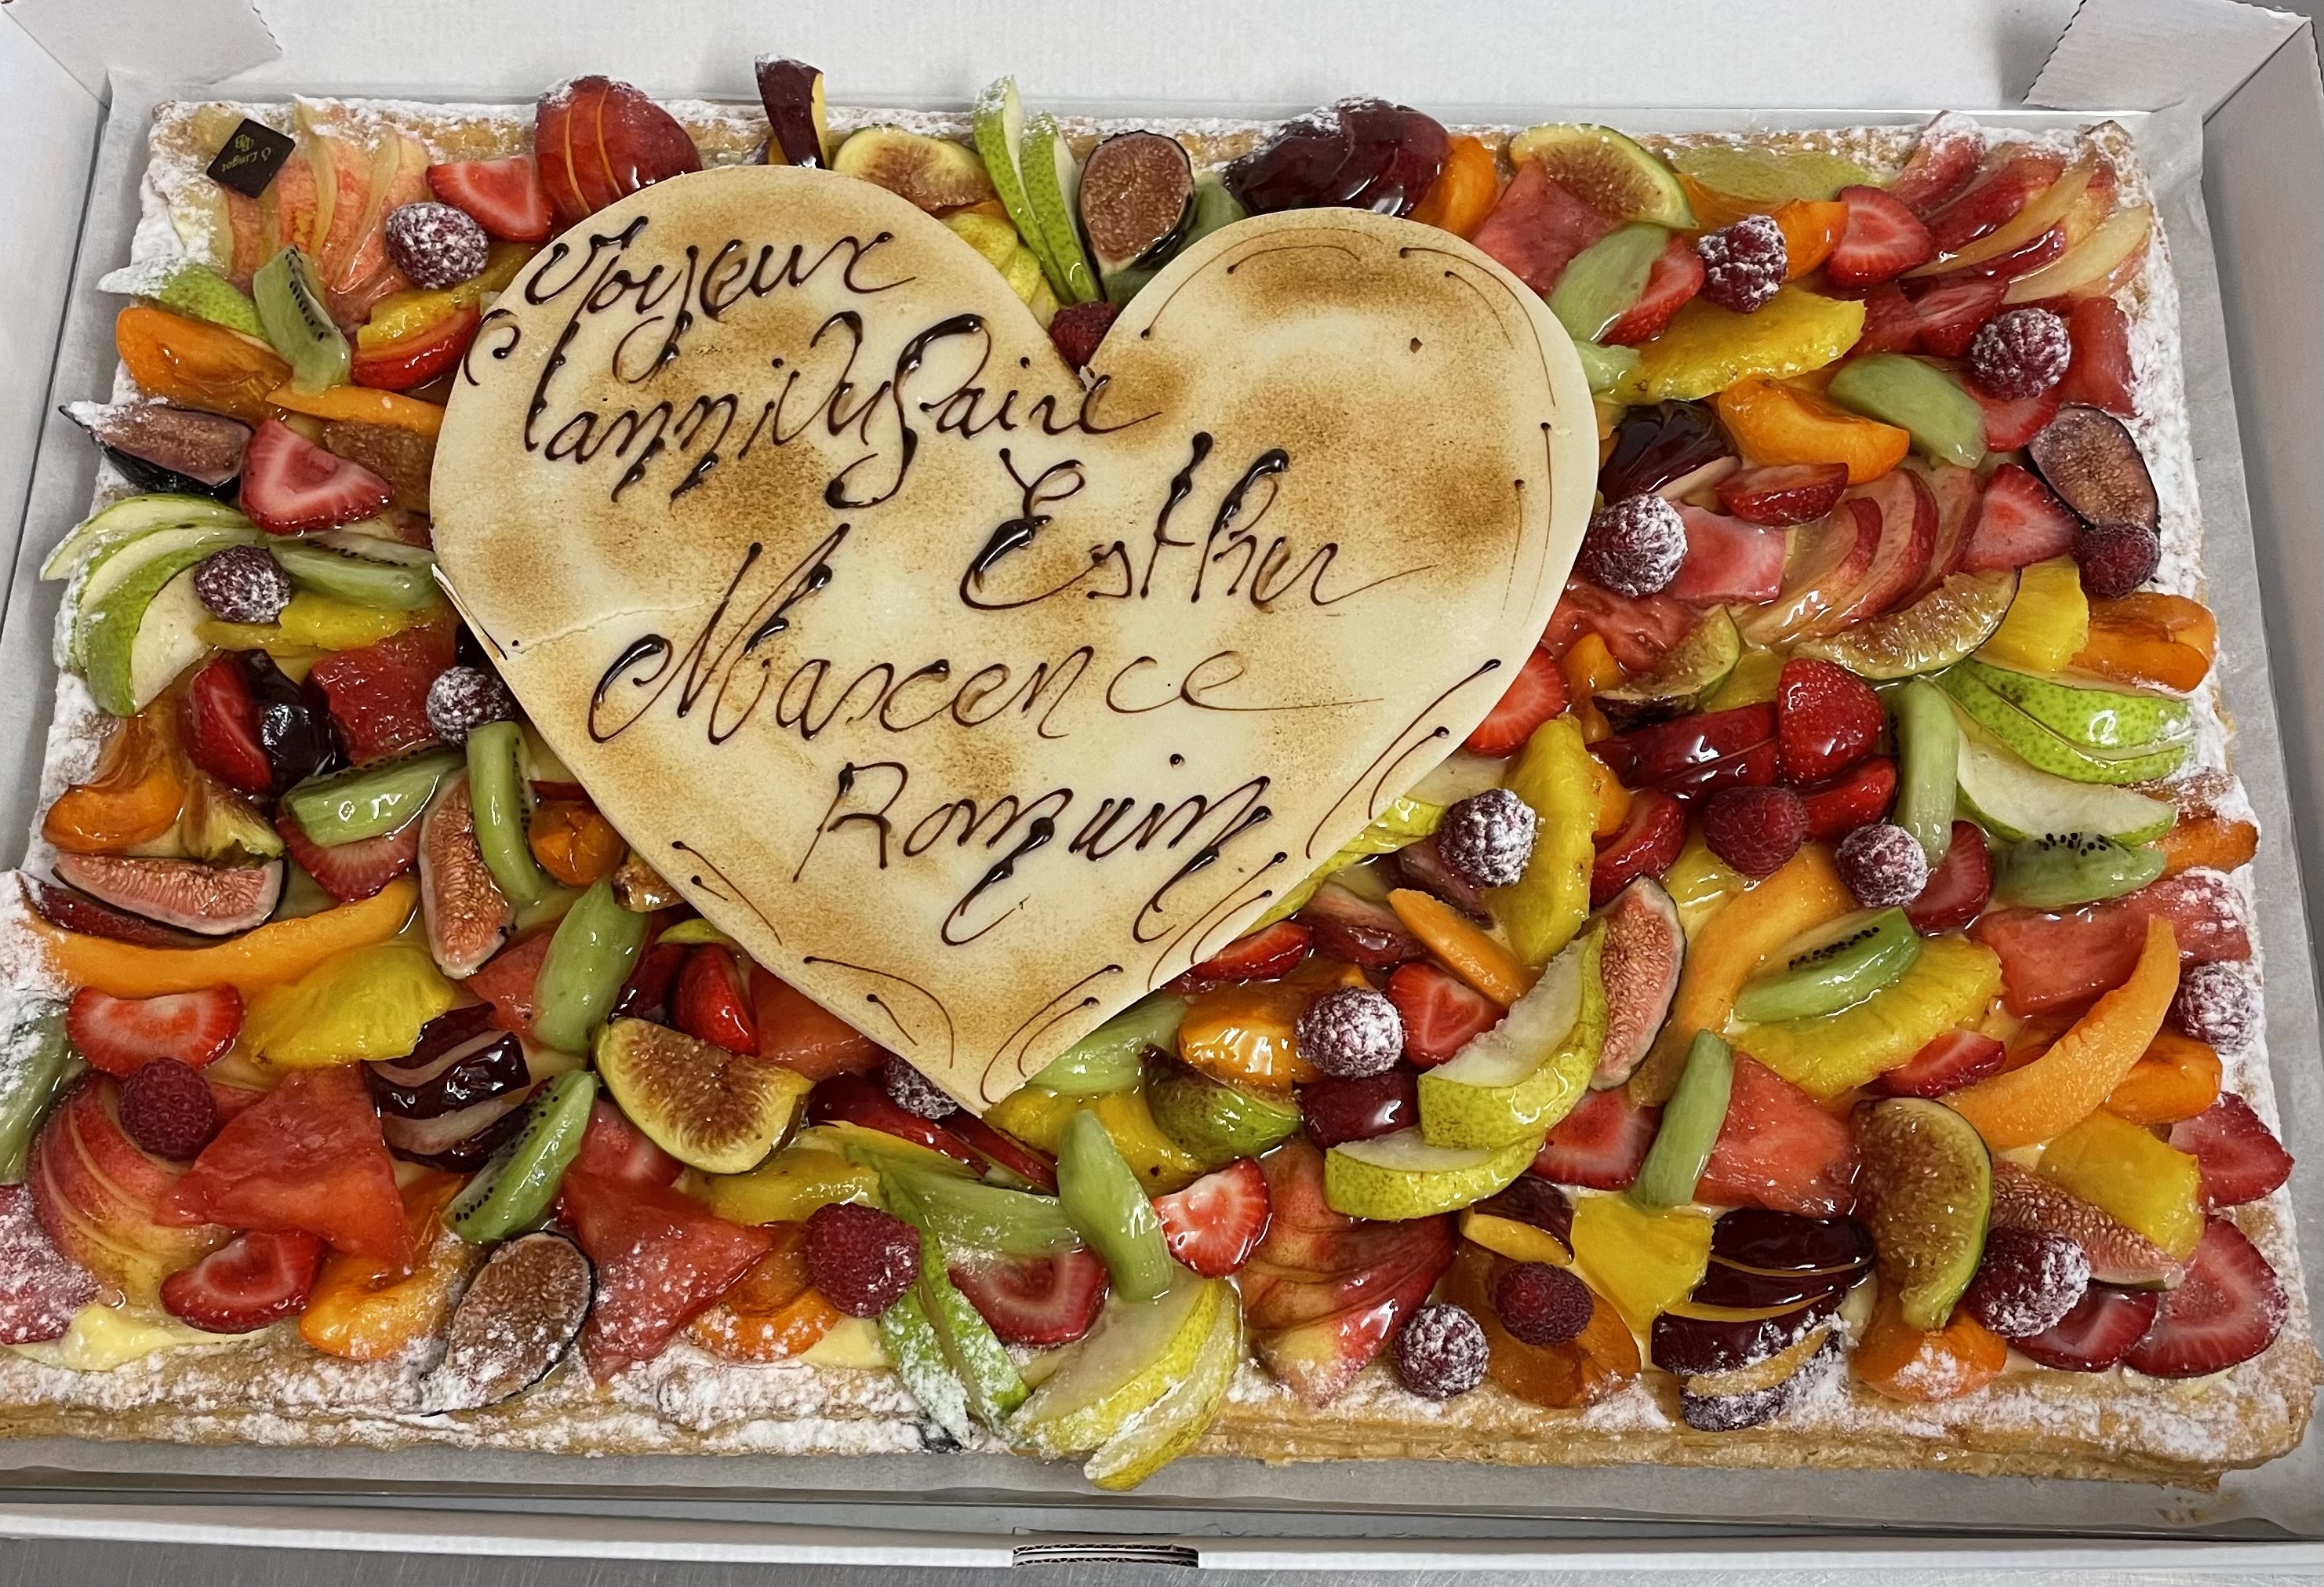 Joyeux
anniversaire
Esther
Maxence
Romain
Ô Lingot